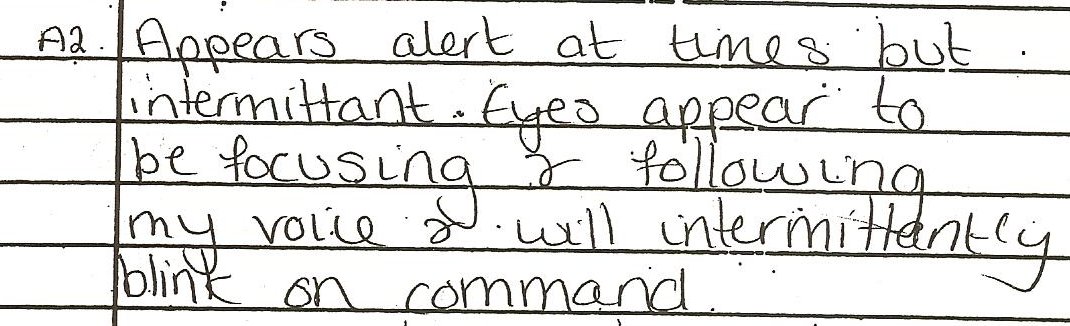 A2. Appears alert at times but
intermittant. Eyes appear to
be focusing & following
my voice & will intermittantly
blink on command.